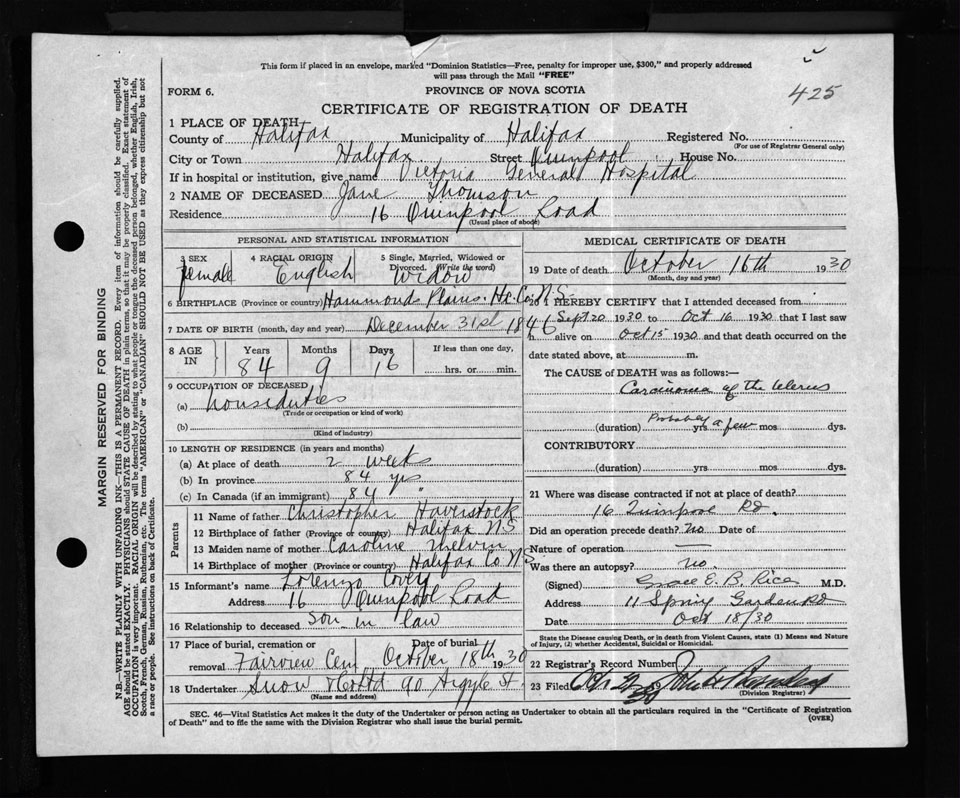 This form if placed in an envelope, marked "Dominion Statistics—Free, penalty for improper use, $300," and properly addressed
will pass through the Mail "FREE"
425
FORM 6.
PROVINCE OF NOVA SCOTIA
CERTIFICATE OF REGISTRATION OF DEATH
1 PLACE OF DEATH
County of Halifax Municipality of Halifax Registered No.
(For use of Registrar General only)
City or Town Halifax Street Quinpool House No.
If in hospital or institution, give name Victoria General Hospital
2 NAME OF DECEASED Jane Thomson
Residence 16 Quinpool Road
(Usual place of abode)
PERSONAL AND STATISTICAL INFORMATION
3 SEX female 4 RACIAL ORIGIN English 5 Single, Married, Widowed or Divorced. (Write the word) Widow
6 BIRTHPLACE (Province or country) Hammonds Plains. Hx. Co. N.S.
7 DATE OF BIRTH (month, day and year) December 31st 1846
8 AGE IN Years 84 Months 9 Days 16 If less than one day, hrs. or min.
9 OCCUPATION OF DECEASED
(a) houseduties
(Trade or occupation or kind of work)
(b)
(Kind of industry)
10 LENGTH OF RESIDENCE (in years and months)
(a) At place of death 2 weeks
(b) In province 84 yrs
(c) In Canada (if an immigrant) 84 "
Parents
11 Name of father Christopher Haverstock
12 Birthplace of father (Province or country) Halifax NS
13 Maiden name of mother Caroline Melvin
14 Birthplace of mother (Province or country) Halifax Co N.S.
15 Informant's name Lorenzo Covey
Address 16 Quinpool Road
16 Relationship to deceased Son in law
17 Place of burial, cremation or removal Fairview Cem Date of burial October 18th 1930
18 Undertaker Snow & Co Ltd 90 Argyle St
(Name and address)
MEDICAL CERTIFICATE OF DEATH
19 Date of death October 16th 1930
(Month, day and year)
20 I HEREBY CERTIFY that I attended deceased from
Sept 20 1930 to Oct 16 1930 that I last saw
h alive on Oct 15 1930 and that death occurred on the
date stated above, at m.
The CAUSE of DEATH was as follows:
Carcinoma of the Uterus
(duration) Probably yrs a few mos dys.
CONTRIBUTORY
(duration) yrs mos dys.
21 Where was disease contracted if not at place of death?
16 Quinpool Rd.
Did an operation precede death? no Date of
Nature of operation —
Was there an autopsy? no.
(Signed) Grace E. B. Rice M.D.
Address 11 Spring Garden Rd
Date Oct 18/30
State the Disease causing Death, or in death from Violent Causes, state (1) Means and Nature
of Injury, (2) whether Accidental, Suicidal or Homicidal.
22 Registrar's Record Number
23 Filed
(Division Registrar)
SEC. 46—Vital Statistics Act makes it the duty of the Undertaker or person acting as Undertaker to obtain all the particulars required in the "Certificate of Registration
of Death" and to file the same with the Division Registrar who shall issue the burial permit.
(OVER)
MARGIN RESERVED FOR BINDING
N.B.—WRITE PLAINLY WITH UNFADING INK—THIS IS A PERMANENT RECORD. Every item of information should be carefully supplied.
AGE should be stated EXACTLY. PHYSICIANS should STATE CAUSE OF DEATH in plain terms, so that it may be properly classified. Exact statement of
OCCUPATION is very important. RACIAL ORIGIN will be described by stating to what people or tongue the deceased person belonged, whether English, Irish,
Scotch, French, German, Russian, Ruthenian, etc. The terms "AMERICAN" or "CANADIAN" SHOULD NOT BE USED as they express citizenship but not
a race or people. See instructions on back of Certificate.